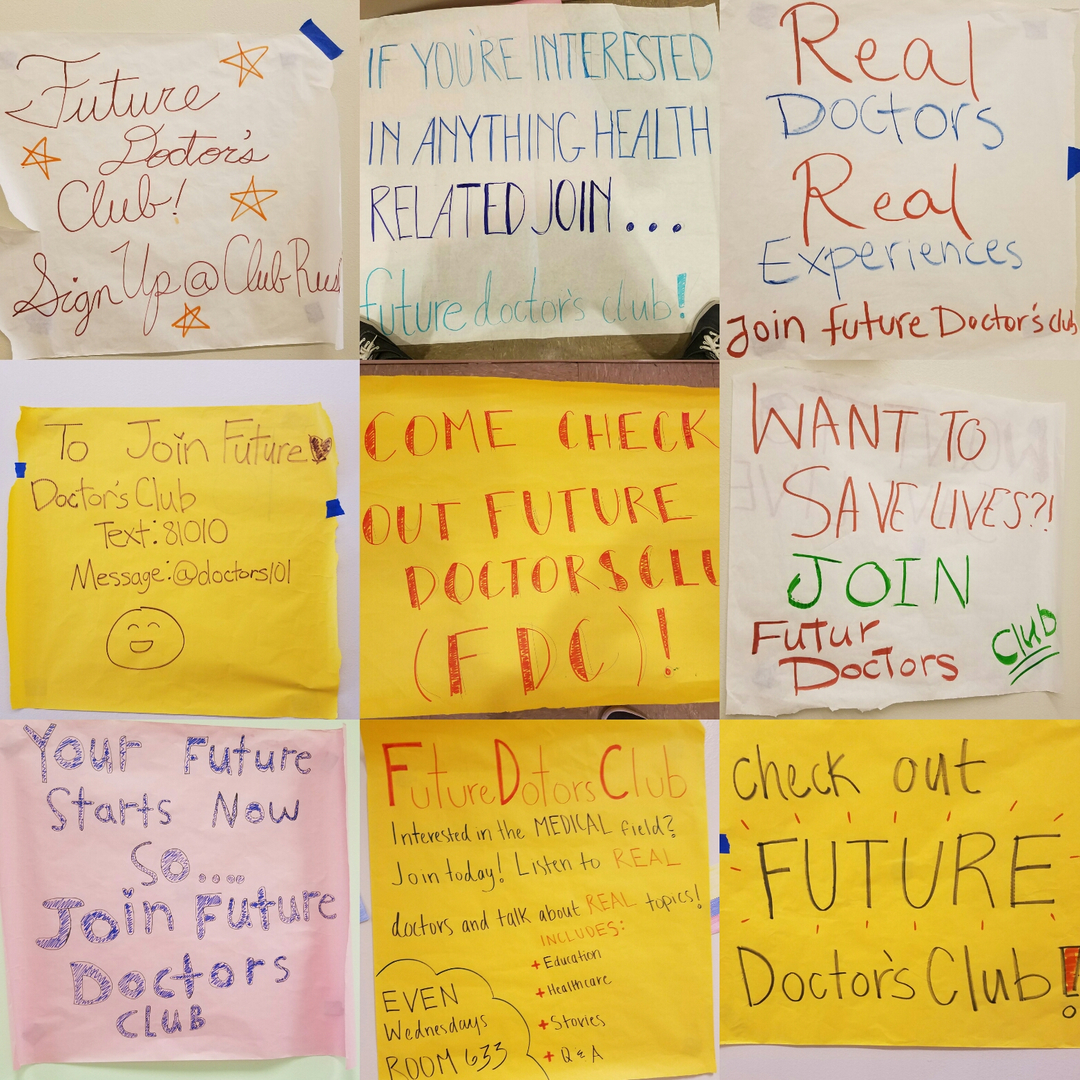 Future
Doctor's
Club!
Sign Up @ Club Rus
IF YOU'RE INTERESTED
IN ANYTHING HEALTH
RELATED JOIN...
future doctor's club!
Real
Doctors
Real
Experiences
Join future Doctor's club
To Join Future
Doctor's Club
Text: 81010
Message: @doctors101
COME CHECK
OUT FUTURE
DOCTORS CLU
(FDC)!
WANT TO
SAVE LIVES?!
JOIN
FUTUR
DOCTORS
CLUB
YOUR Future
Starts Now
SO....
Join Future
Doctors
CLUB
Future Dotors Club
Interested in the MEDICAL field?
Join today! Listen to REAL
doctors and talk about REAL topics!
INCLUDES:
+ Education
+ Healthcare
+ Stories
+ Q & A
EVEN
Wednesdays
ROOM 633
check out
FUTURE
Doctor's Club!